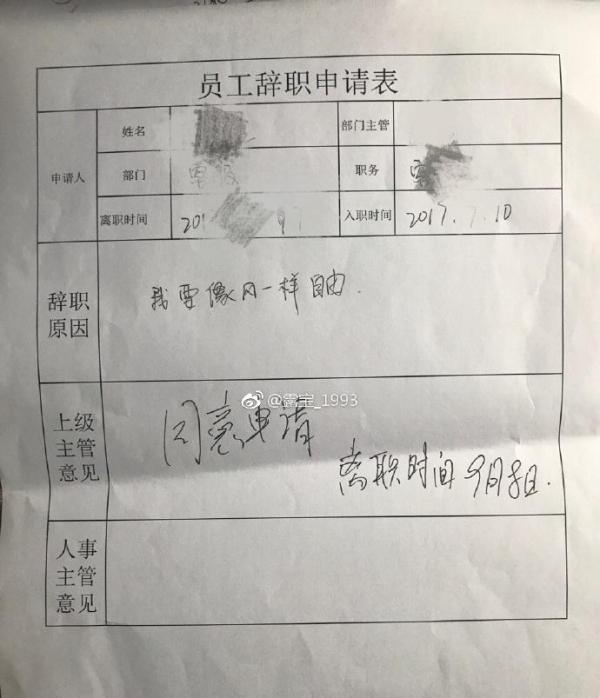 员工辞职申请表
申请人
姓名
部门主管
部门
职务
离职时间 201
入职时间 2017.7.10
辞职原因
我要像风一样自由.
@霭宝_1993
上级主管意见
同意申请
离职时间 9月8日.
人事主管意见